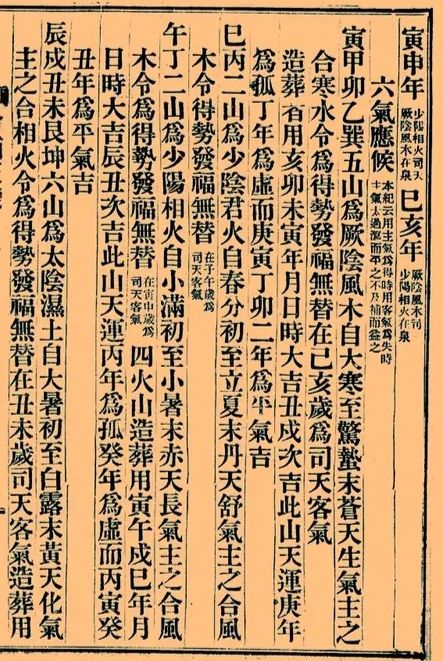 寅申年少陽相火司天厥陰風木在泉巳亥年厥陰風木司少陽相火在泉
六氣應候本紀云用主氣爲得時用客氣爲失時主氣太過瀉而平之不及補而益之
寅甲卯乙巽五山爲厥陰風木自大寒至驚蟄末蒼天生氣主之
合寒水令爲得勢發福無替在巳亥歲爲司天客氣
造葬者用亥卯未寅年月日時大吉丑戌次吉此山天運庚年
爲孤丁年爲虛而庚寅丁卯二年爲平氣吉
巳丙二山爲少陰君火自春分初至立夏末丹天舒氣主之合風
木令得勢發福無替在子午歲爲司天客氣
午丁二山爲少陽相火自小滿初至小暑末赤天長氣主之合風
木令爲得勢發福無替在寅申歲爲司天客氣四火山造葬用寅午戌巳年月
日時大吉辰丑次吉此山天運丙年爲孤癸年爲虛而丙寅癸
丑年爲平氣吉
辰戌丑未艮坤六山爲太陰濕土自大暑初至白露末黃天化氣
主之合相火令爲得勢發福無替在丑未歲司天客氣造葬用